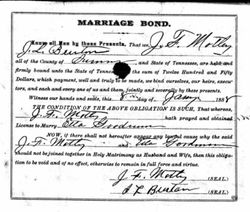 MARRIAGE BOND.
Know all Men by these Presents, That we J. F. Motley
J. L. Burton
all of the County of Sumner and State of Tennessee, are held and
firmly bound unto the State of Tennessee in the sum of Twelve Hundred and Fifty
Dollars, which payment, well and truly to be made, we bind ourselves, our heirs, executors, and each and every one of us and them, jointly and severally by these presents.
Witness our hands and seals, this day of 188
THE CONDITION OF THE ABOVE OBLIGATION IS SUCH, That whereas,
J. F. Motley hath prayed and obtained
License to Marry Etta Goodrum
NOW, if there shall not hereafter appear any lawful cause why the said
J. F. Motley and Etta Goodrum
should not be joined together in Holy Matrimony as Husband and Wife, then this obligation
to be void and of no effect, otherwise to remain in full force and virtue.
J. F. Motley (SEAL)
J L Burton (SEAL)